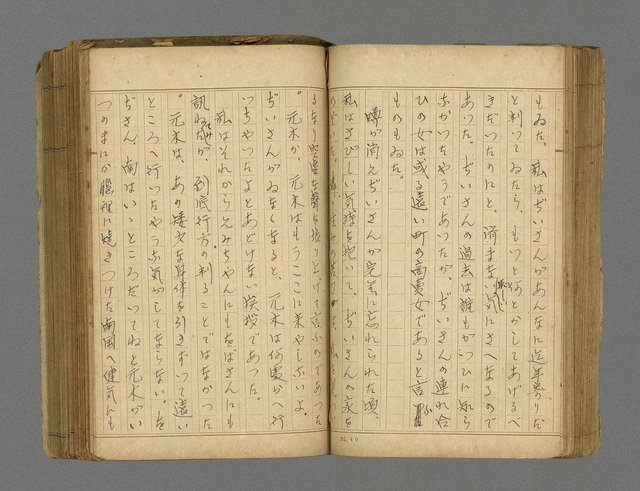 もゐた。私はぢいさんがあんなに近年参りだ
と判つてゐたら、もつとなんとかしてあげるべ
きだつたのにと、済まない気にさへなるので
あつた。ぢいさんの過去は誰もがつひに知ら
なかつたやうであつたが、ぢいさんの連れ合
ひの女は或る遠い町の高女であると言ふ
ものもゐた。
噂が消えぢいさんが完全に忘れられた頃、
私はさびしい気持を抱いて、ぢいさんの家を
るなり空虚な聲を振り上げて言ふのであつた
。元木か、元木はもうここに来やしないよ。
ぢいさんがゐなくなると、元木は何處かへ行
つちやつたよとあどけない挨拶であつた。
私はそれから兄みちやんにもをばさんにも
訊ねてみたが、到底行方の判ることではなかつた
。元木は、あの矮少な身体を引きずつて遠い
ところへ行つたやうな気がしてならない。を
ぢさん、南はいいところだつてねと元木がい
つのまにか臆裡に焼きつけた南国へ健気にも
No. 40